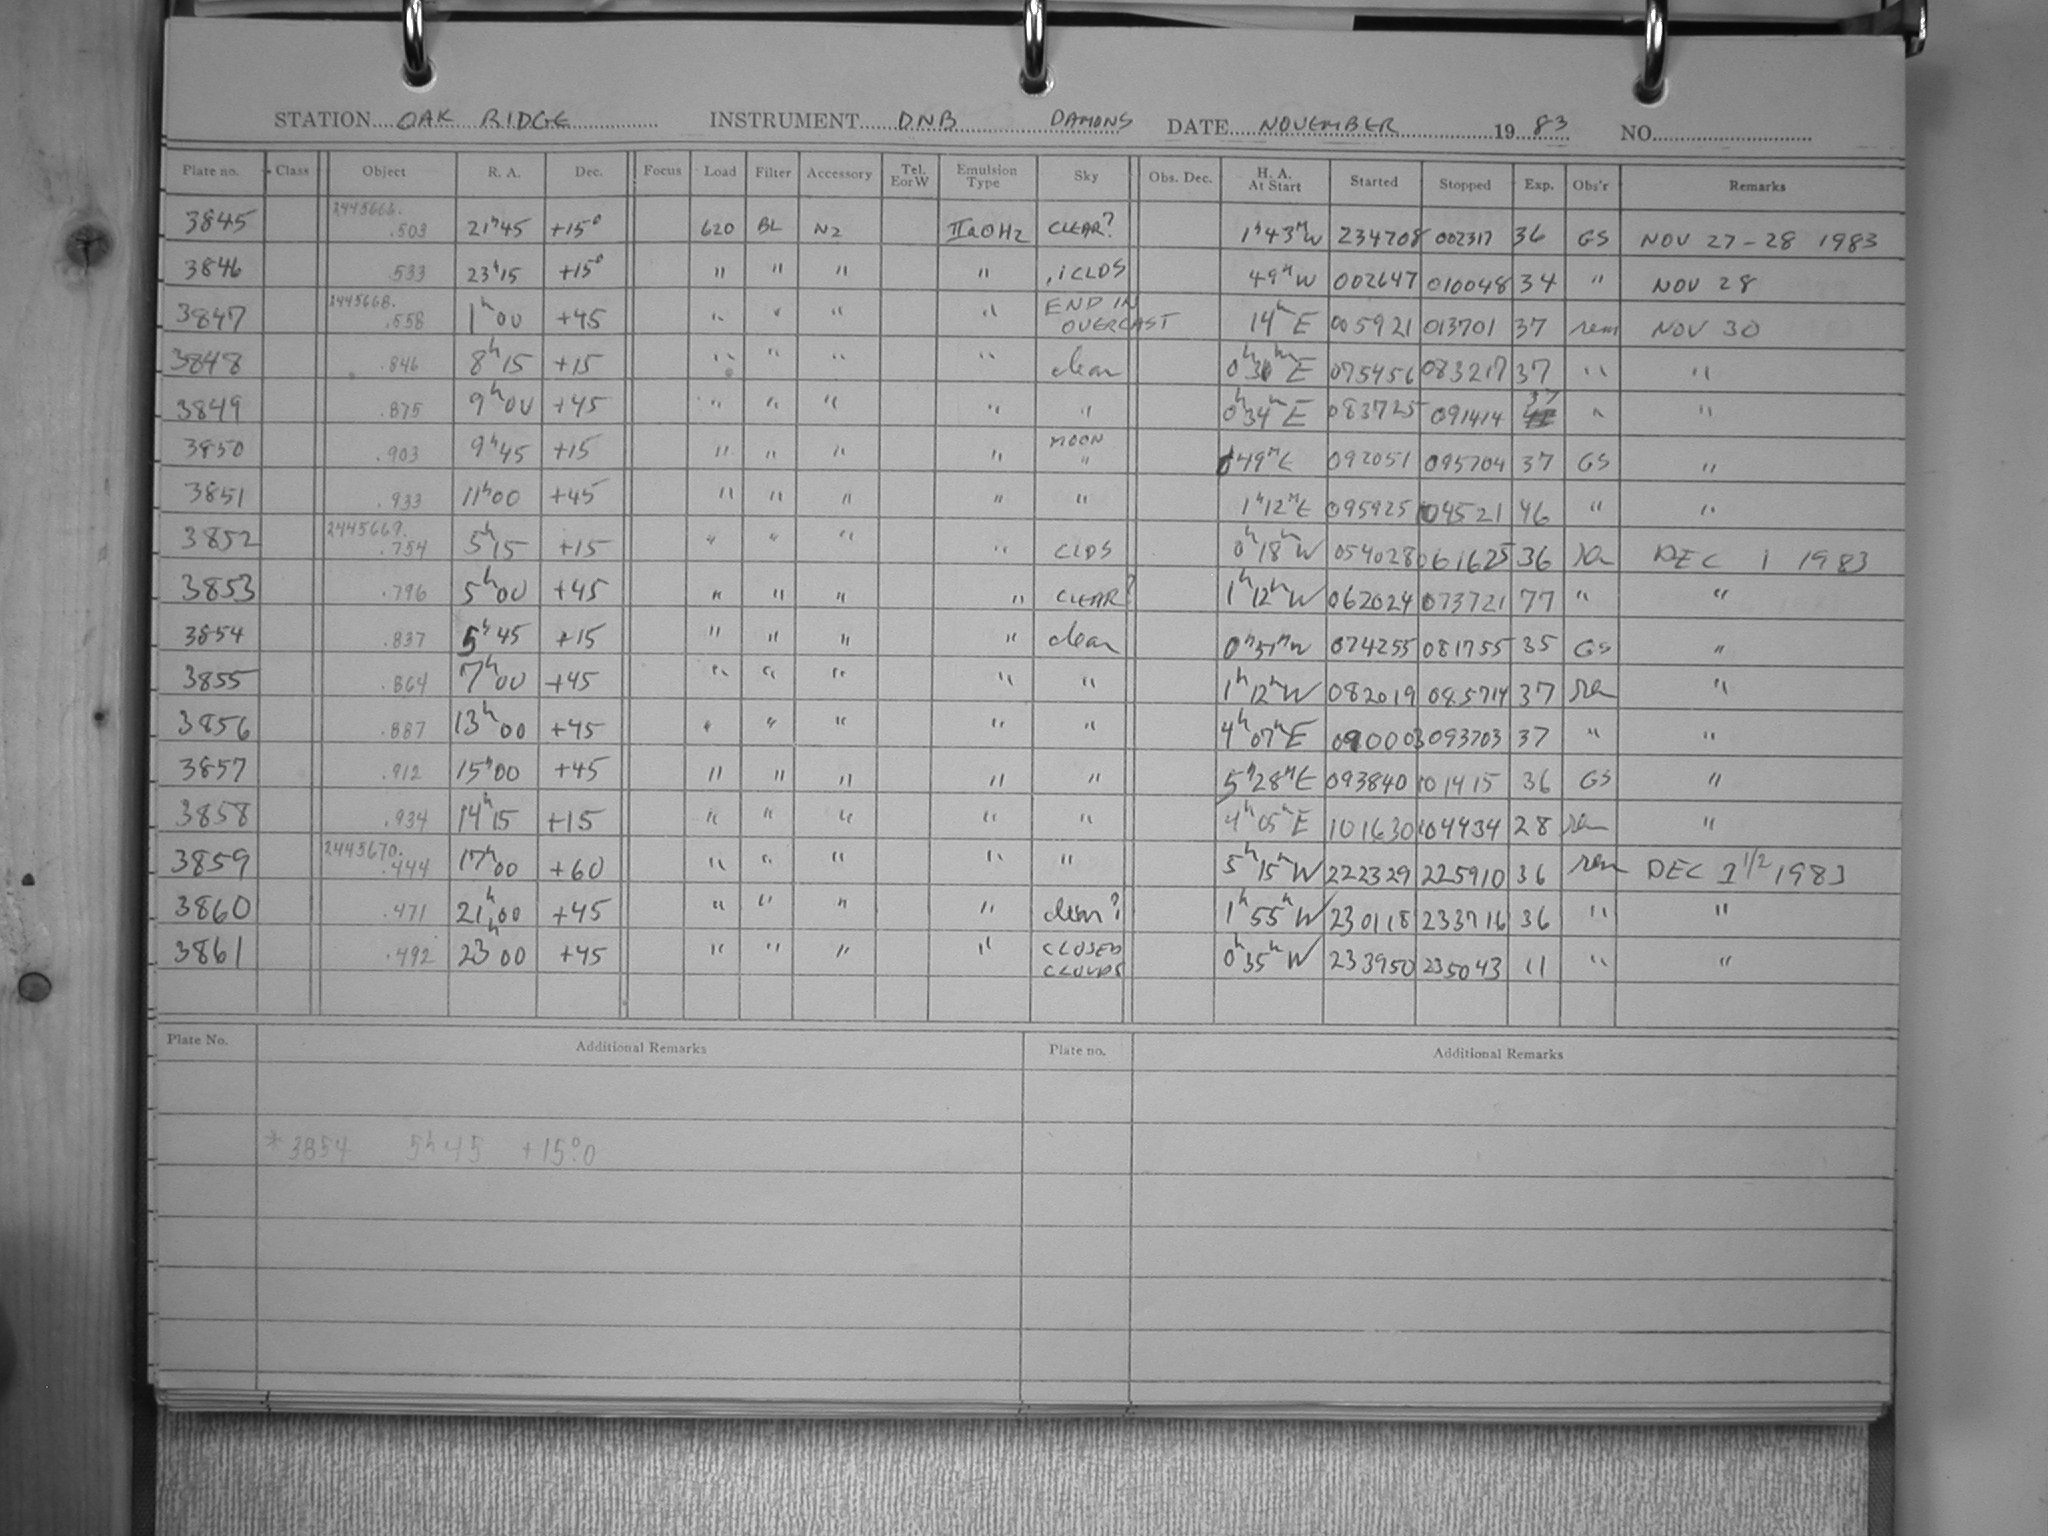 STATION OAK RIDGE INSTRUMENT DNB DAMONS DATE NOVEMBER 19 83 NO.
Plate no. Class Object R. A. Dec. Focus Load Filter Accessory Tel. EorW Emulsion Type Sky Obs. Dec. H. A. At Start Started Stopped Exp. Obs'r Remarks
3845 2445666. .503 21h45 +15° 620 BL N2 IIaOH2 CLEAR? 1h43mW 234708 002317 36 GS NOV 27-28 1983
3846 .533 23h15 +15° " " " " CLDS 49mW 002647 010048 34 " NOV 28
3847 2445668. .558 1h00 +45 " " " " END IN OVERCAST 14m E 005921 013701 37 rem NOV 30
3848 .846 8h15 +15 " " " " clear E 075456 083217 37 " "
3849 .875 9h00 +45 " " " " " 0h34m E 083725 091414 37 " "
3850 .903 9h45 +15 " " " " MOON " 49mE 092051 095704 37 GS "
3851 .933 11h00 +45 " " " " " 1h12mE 095925 104521 46 " "
3852 2445669. .754 5h15 +15 " " " " CLDS 0h18mW 054028 061625 36 DEC 1 1983
3853 .796 5h00 +45 " " " " CLEAR? 1h12mW 062024 073721 77 " "
3854 .837 5h45 +15 " " " " clear 074255 081755 35 GS "
3855 .864 7h00 +45 " " " " " 1h12mW 082019 085714 37 "
3856 .887 13h00 +45 " " " " " 4h07mE 090003 093703 37 " "
3857 .912 15h00 +45 " " " " " 5h28mE 093840 101415 36 GS "
3858 .934 14h15 +15 " " " " " 4h05mE 101630 104434 28 "
3859 2445670. .444 17h00 +60 " " " " " 5h15mW 222329 225910 36 rem DEC 1 1/2 1983
3860 .471 21h00 +45 " " " " clear? 1h55mW 230118 233716 36 " "
3861 .492 23h00 +45 " " " " CLOSED CLOUDS 0h35mW 233950 235043 11 " "
Plate No. Additional Remarks Plate no. Additional Remarks
*3854 5h45 +15°.0